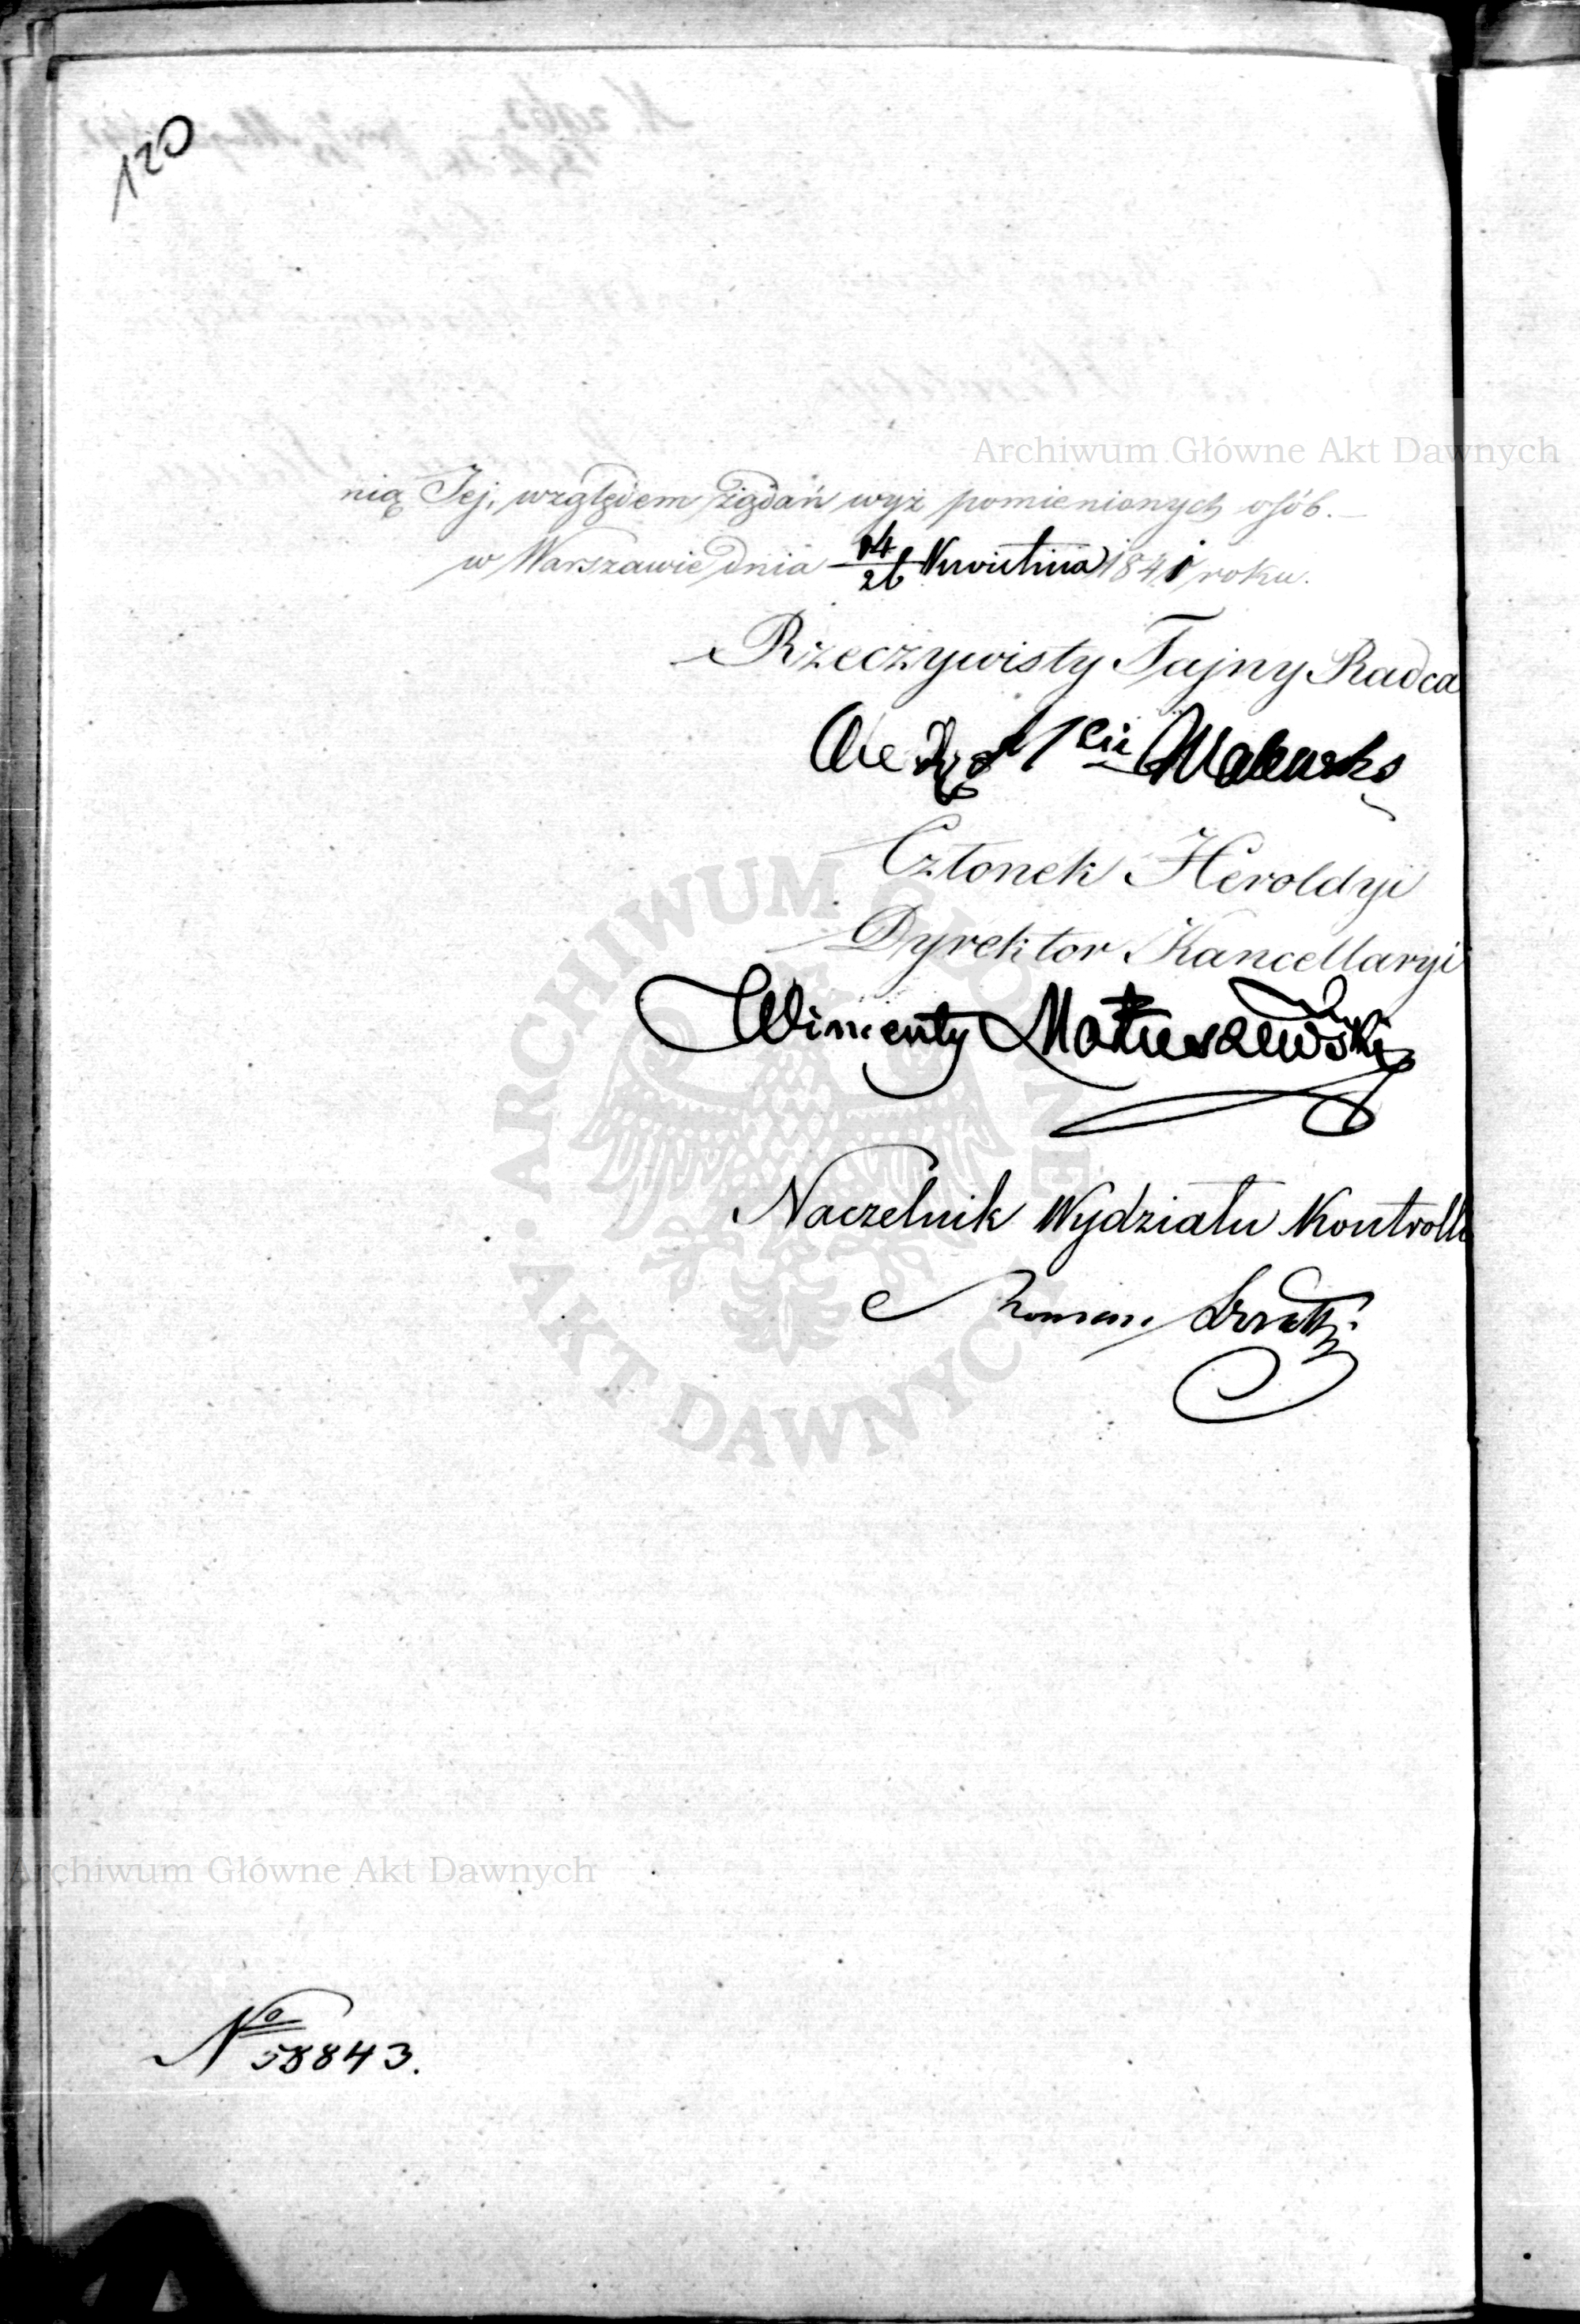 120
Archiwum Główne Akt Dawnych
nią Jej, względem żądań wyż pomienionych osób.
w Warszawie dnia 14/26 Kwietnia 1841 roku.
Rzeczywisty Tajny Radca
Członek Heroldyi
Dyrektor Kancellaryi
Wincenty Matuszewski
ARCHIWUM GŁÓWNE AKT DAWNYCH
Naczelnik Wydziału Kontrolli
Roman
Archiwum Główne Akt Dawnych
No 58843.